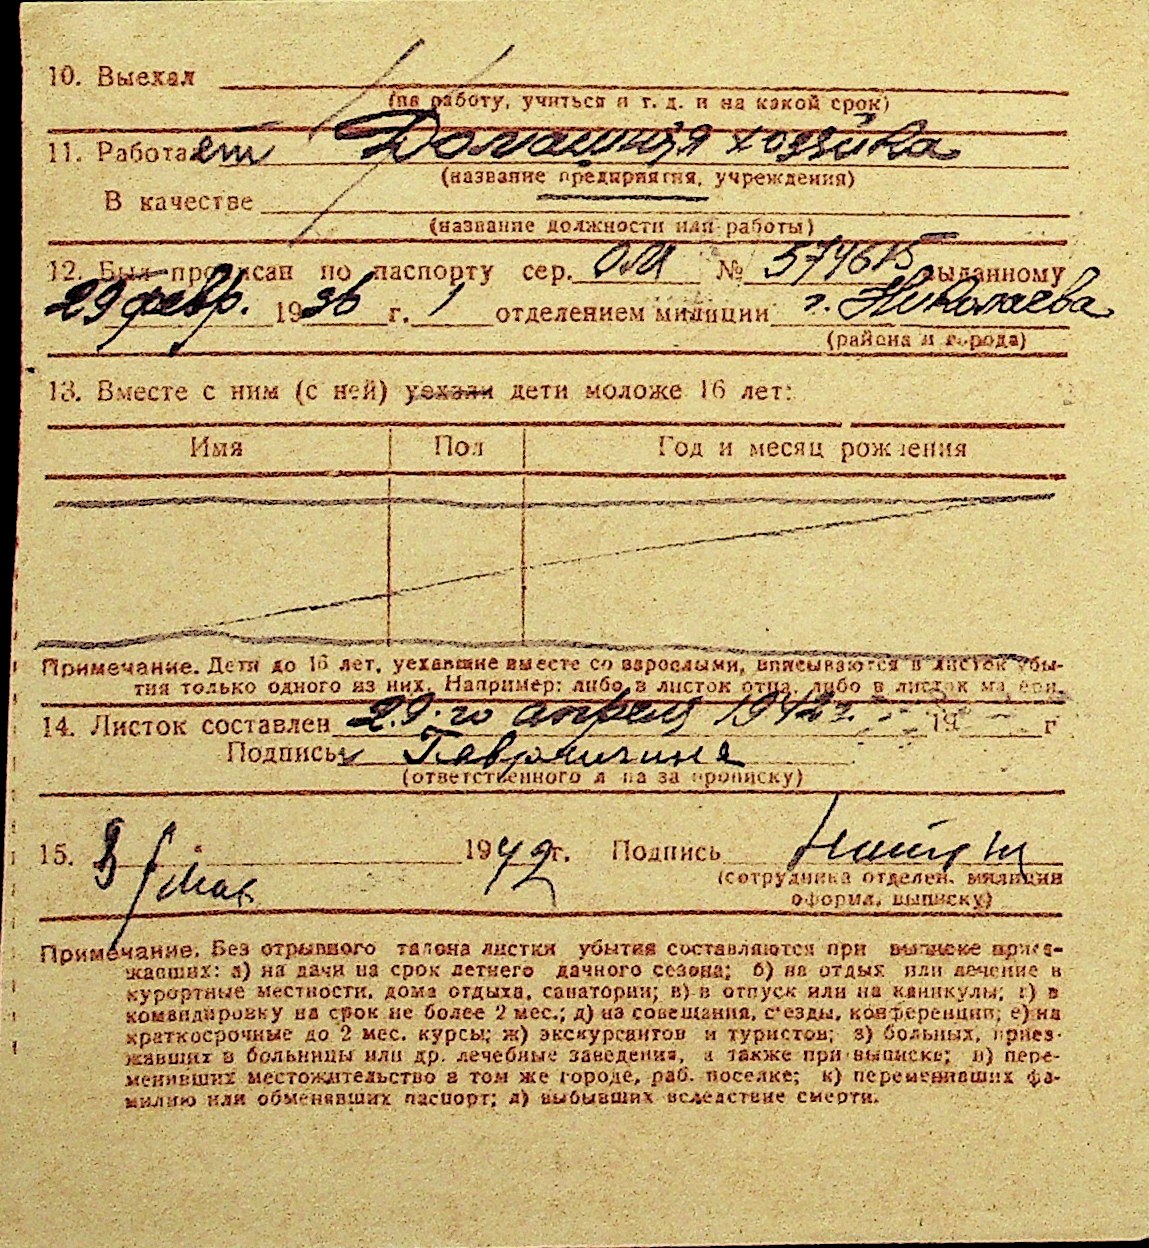 10. Выехал
(на работу, учиться и т. д. и на какой срок)
11. Работает Домашняя хозяйка
(название предприятия, учреждения)
В качестве
(название должности или работы)
12. Был прописан по паспорту сер. ОМ № 574615 выданному
29 февр. 1936 г. 1 отделением милиции г. Николаева
(района и города)
13. Вместе с ним (с ней) уехали дети моложе 16 лет:
Имя Пол Год и месяц рождения
Примечание. Дети до 16 лет, уехавшие вместе со взрослыми, вписываются в листок убы-
тия только одного из них. Например: либо в листок отца, либо в листок матери.
14. Листок составлен 29-го апреля 1942 г. 19 г
Подпись
(ответственного л на за прописку)
15. 8 мая 1942 г. Подпись
(сотрудника отделен. милиции
оформл. выписку)
Примечание. Без отрывного талона листки убытия составляются при выписке приез-
жавших: а) на дачи на срок летнего дачного сезона; б) на отдых или лечение в
курортные местности, дома отдыха, санатории; в) в отпуск или на каникулы; г) в
командировку на срок не более 2 мес.; д) на совещания, с'езды, конференции; е) на
краткосрочные до 2 мес. курсы; ж) экскурсантов и туристов; з) больных, приез-
жавших в больницы или др. лечебные заведения, а также при выписке; и) пере-
менивших местожительство в том же городе, раб. поселке; к) переменивших фа-
милию или обменявших паспорт; л) выбывших вследствие смерти.